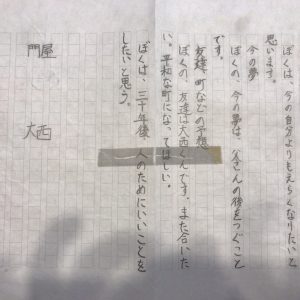 ぼくは、今の自分よりもえらくなりたいと
思います。
今の夢
ぼくの、今の夢は、父さんの後をつぐこと
です。
友達、町などの予想
ぼくの、友達は大西くんです。また合いた
い。平和な町になってほしい。
ぼくは、三十年後人のためにいいことを
したいと思う。
大西
門屋